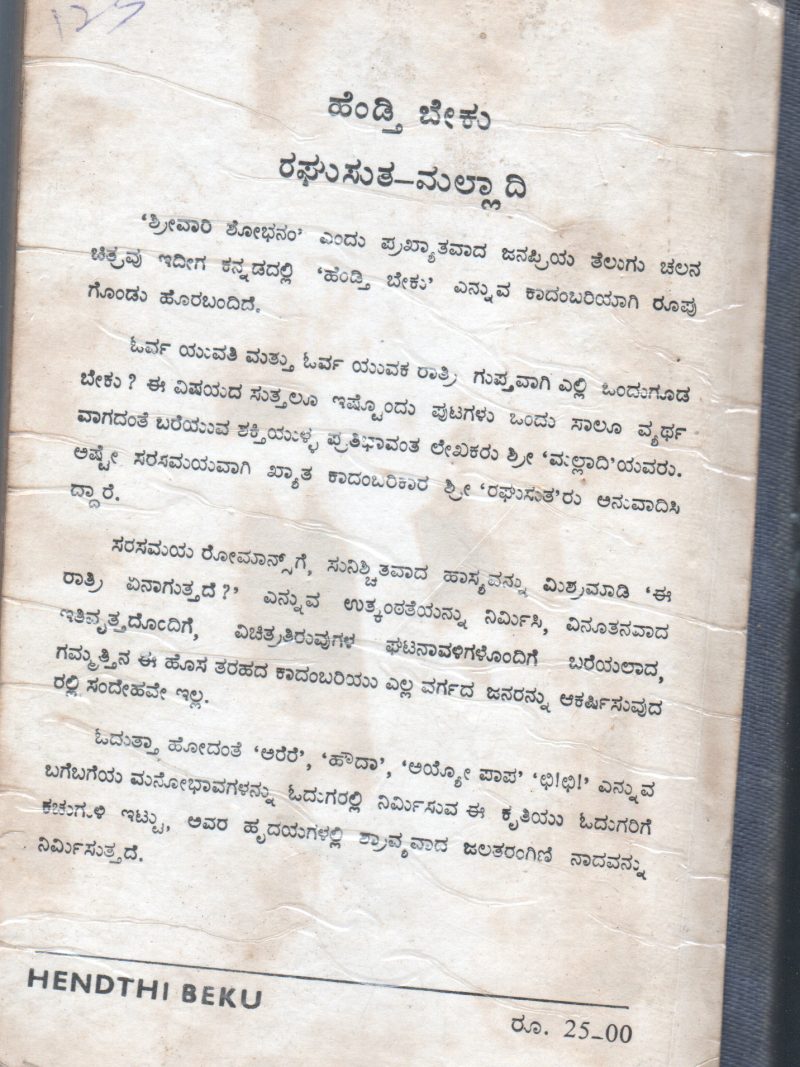 125
ಹೆಂಡ್ತಿ ಬೇಕು
ರಘುಸುತ–ಮಲ್ಲಾದಿ
‘ಶ್ರೀವಾರಿ ಶೋಭನಂ’ ಎಂದು ಪ್ರಖ್ಯಾತವಾದ ಜನಪ್ರಿಯ ತೆಲುಗು ಚಲನ
ಚಿತ್ರವು ಇದೀಗ ಕನ್ನಡದಲ್ಲಿ ‘ಹೆಂಡ್ತಿ ಬೇಕು’ ಎನ್ನುವ ಕಾದಂಬರಿಯಾಗಿ ರೂಪು
ಗೊಂಡು ಹೊರಬಂದಿದೆ.
ಓರ್ವ ಯುವತಿ ಮತ್ತು ಓರ್ವ ಯುವಕ ರಾತ್ರಿ ಗುಪ್ತವಾಗಿ ಎಲ್ಲಿ ಒಂದುಗೂಡ
ಬೇಕು? ಈ ವಿಷಯದ ಸುತ್ತಲೂ ಇಷ್ಟೊಂದು ಪುಟಗಳು ಒಂದು ಸಾಲೂ ವ್ಯರ್ಥ
ವಾಗದಂತೆ ಬರೆಯುವ ಶಕ್ತಿಯುಳ್ಳ ಪ್ರತಿಭಾವಂತ ಲೇಖಕರು ಶ್ರೀ ‘ಮಲ್ಲಾದಿ’ಯವರು.
ಅಷ್ಟೇ ಸರಸಮಯವಾಗಿ ಖ್ಯಾತ ಕಾದಂಬರಿಕಾರ ಶ್ರೀ ‘ರಘುಸುತ’ರು ಅನುವಾದಿಸಿ
ದ್ದಾರೆ.
ಸರಸಮಯ ರೋಮಾನ್ಸ್‌ಗೆ, ಸುನಿಶ್ಚಿತವಾದ ಹಾಸ್ಯವನ್ನು ಮಿಶ್ರಮಾಡಿ ‘ಈ
ರಾತ್ರಿ ಏನಾಗುತ್ತದೆ?’ ಎನ್ನುವ ಉತ್ಕಂಠತೆಯನ್ನು ನಿರ್ಮಿಸಿ, ವಿನೂತನವಾದ
ಇತಿವೃತ್ತದೊಂದಿಗೆ, ವಿಚಿತ್ರತಿರುವುಗಳ ಘಟನಾವಳಿಗಳೊಂದಿಗೆ ಬರೆಯಲಾದ,
ಗಮ್ಮತ್ತಿನ ಈ ಹೊಸ ತರಹದ ಕಾದಂಬರಿಯು ಎಲ್ಲ ವರ್ಗದ ಜನರನ್ನು ಆಕರ್ಷಿಸುವುದ
ರಲ್ಲಿ ಸಂದೇಹವೇ ಇಲ್ಲ.
ಓದುತ್ತಾ ಹೋದಂತೆ ‘ಅರೆರೆ’, ‘ಹೌದಾ’, ‘ಅಯ್ಯೋ ಪಾಪ’ ‘ಛಿ!ಛಿ!’ ಎನ್ನುವ
ಬಗೆಬಗೆಯ ಮನೋಭಾವಗಳನ್ನು ಓದುಗರಲ್ಲಿ ನಿರ್ಮಿಸುವ ಈ ಕೃತಿಯು ಓದುಗರಿಗೆ
ಕಚುಗುಳಿ ಇಟ್ಟು, ಅವರ ಹೃದಯಗಳಲ್ಲಿ ಶ್ರಾವ್ಯವಾದ ಜಲತರಂಗಿಣಿ ನಾದವನ್ನು
ನಿರ್ಮಿಸುತ್ತದೆ.
HENDTHI BEKU
ರೂ. 25–00